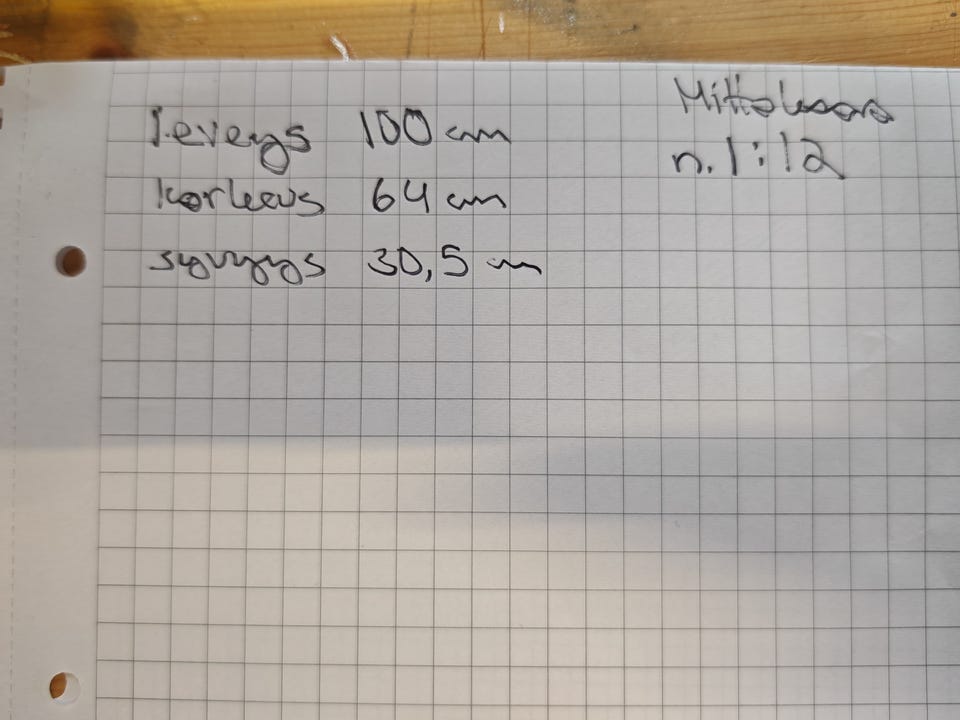 leveys 100 cm
korkeus 64 cm
syvyys 30,5 cm
Mittakaava
n. 1:12